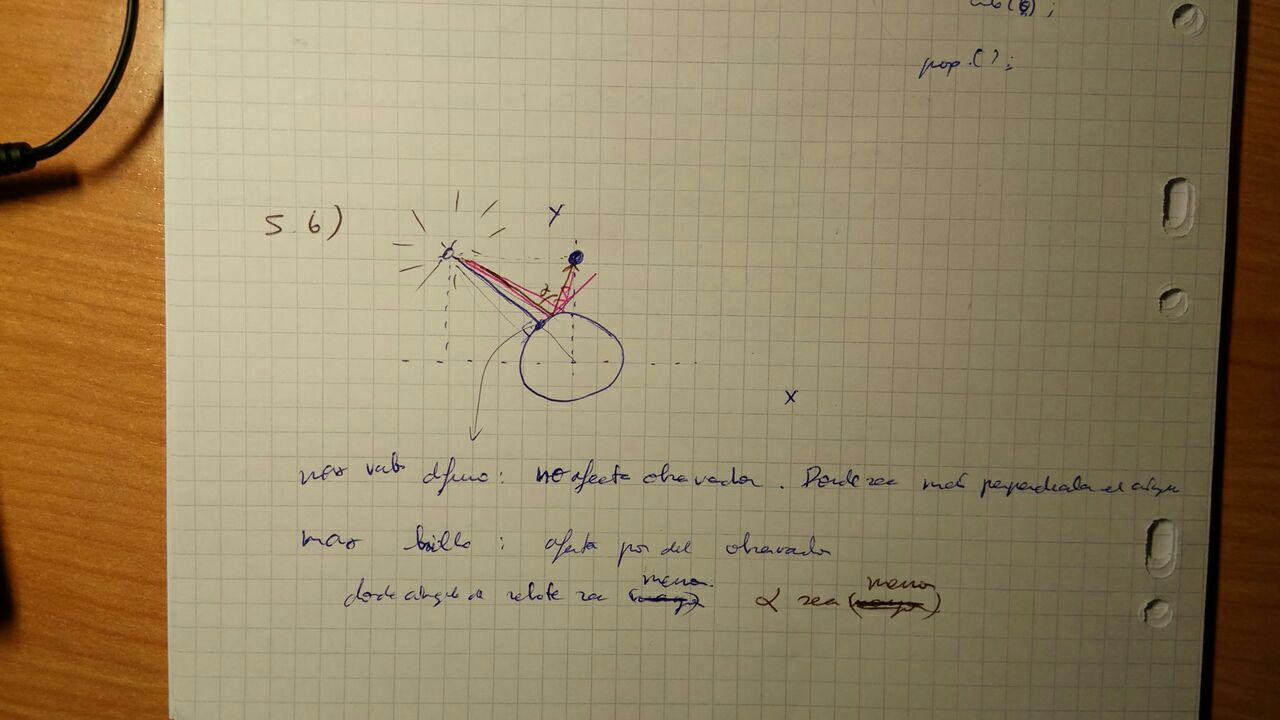 pop.();
5.6)
y
α
x
max valor difuso: no afecta observador. Donde sea más perpendicular el
max brillo: afecta pos del observador
donde angulo de rebote sea (menor)
α sea (menor)